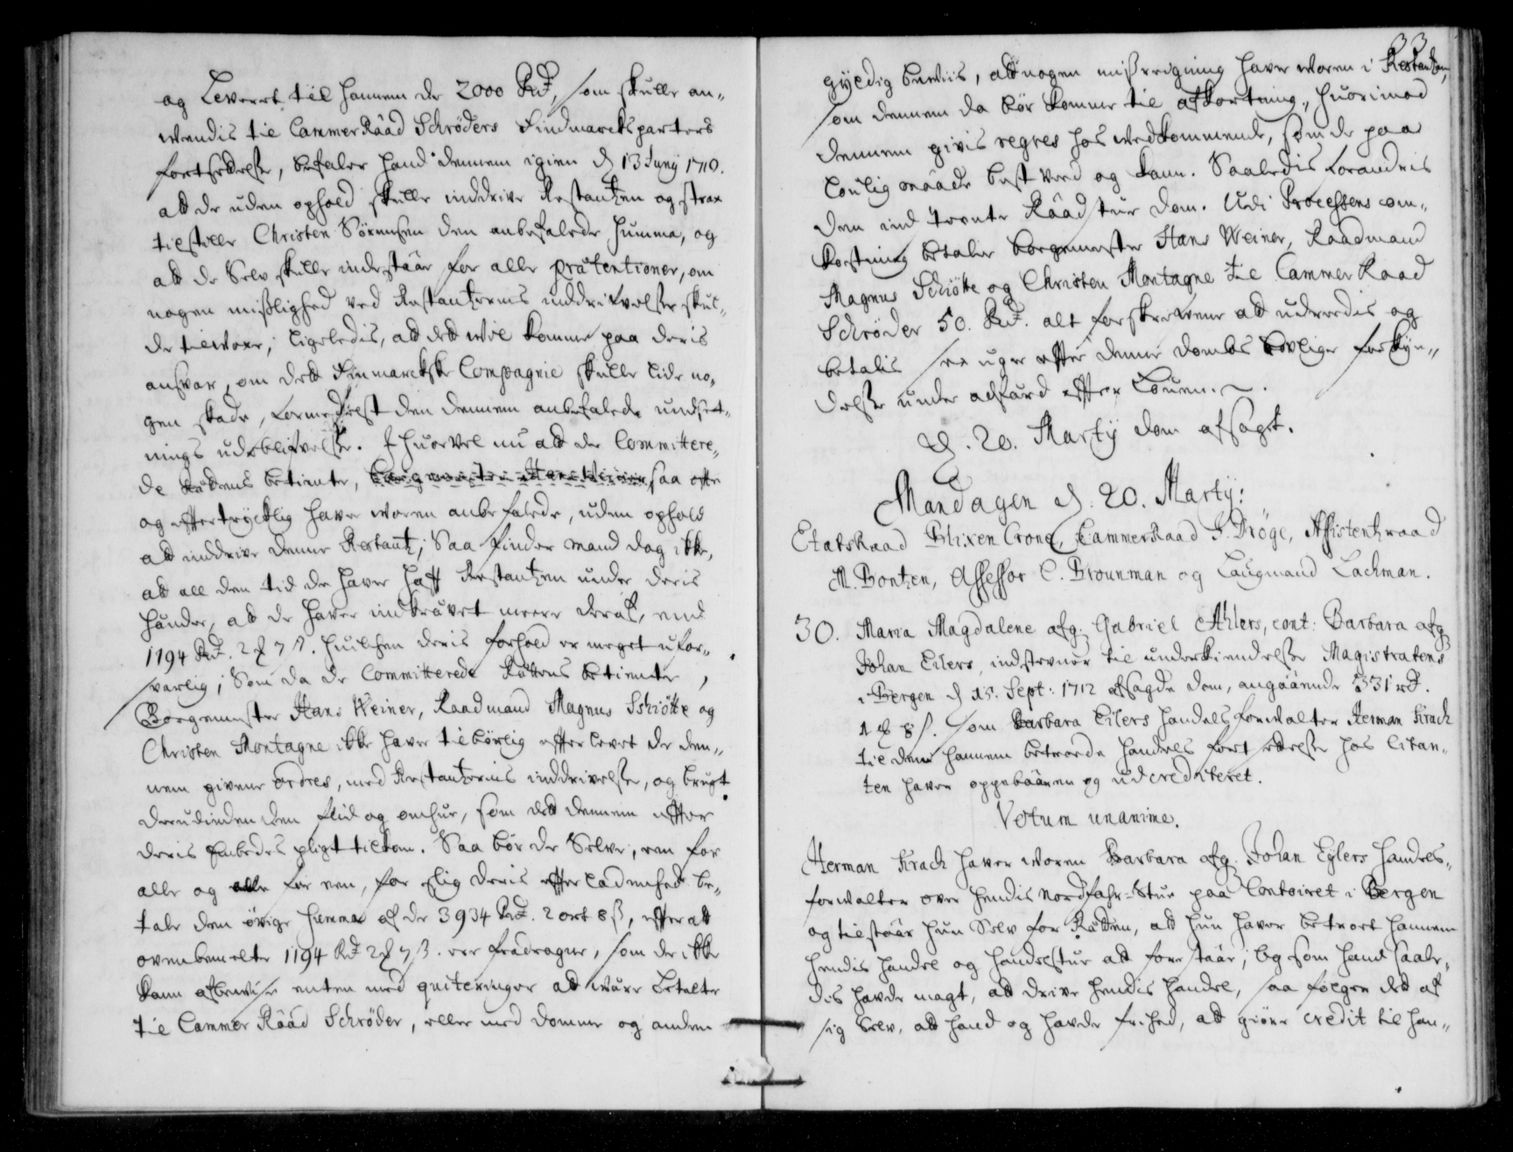 og Leveret til hannem de 2000 Rd, som skulle an„
vendis til Cammer Raad Schrøders Findmarckspartes
fortsettelse, befaler hand dennem igien d 13 Junij 1710.
at de uden ophold skulle inddrive Restantzen og strax
tilstille Christen Sørensen den anbefalede summa, og
at de Selv skulle indestaar for alle prætentioner, om
nogen mislighed ved Restantzernis inddrivelse skul„
de tilvoxe; ligeledis, at det vil komme paa deris
ansvar, om det Finmarckske Compagnie skulle lide no„
gen skade, formedelst den dennem anbefalede undset„
nings udeblivelse. Ihvorvel nu at de Committere„
de Rettens betiente, saa ofte
og eftertrycklig haver voren anbefalede, uden ophold
at inddrive denne Restantz; Saa finder mand dog ikke,
at all den tid de haver haft Restantzen under deris
hænder, at de haver indkrævet meere deraf, end
1194 Rd. 2 ß 7 ß. Huilchen deris forhold er meget ufor„
svarlig; Som da de Committerede Rettens betiente,
Borgemester Hans Weiner, Raadmand Magnus Schiøtte og
Christen Montagne ikke haver tilbørlig efterlevet de den„
nem givene ordres, med Restantzernis inddrivelse, og brugt
derudinden den flid og omhue, som det dennem efter
deris Embedes pligt tilkom. Saa bør de Selve, een for
alle og alle for een, for slig deris efterladenhed be„
tale den øvrige Summa af de 3934 Rd. 2 ort 8 ß, efter at
ovenbemelte 1194 Rd 2 ß 7 ß. ere fradragne, som de ikke
kann afbevise enten med quiteringer at være betalte
til Cammer Raad Schrøder, eller med domme og anden
33
gyldig beviis, at nogen misregning haver voren i Restantzen,
som dennem da bør komme til afkortning, huorimod
dennem givis regres hos vedkommende, som de paa
louglig maade best veed og kann. Saaledis forandris
den ind Trente Raadstue dom. Udi Processens om„
kostning betaler borgemester Hans Weiner, Raadmand
Magnus Schiøtte og Christen Montagne til Cammer Raad
Schrøder 50. Rd. alt forskrevene at udreedis og
betalis sex uger efter denne dombs lovlige forkyn„
delse under adfærd efter Louen.
d. 20. Martij dom afsagt.
Mandagen d. 20. Martij:
Etatsraad Blixen Crone, Cammerraad P. Dröge, Assistentzraad
M. Bontzen, Assessor C. Brounman og Laugmand Lachman.
30. Maria Magdalene afg: Gabriel Ahlers, cont: Barbara afg
Johan Eilers, indstevner til underkiendelse Magistratens
i Bergen d 15. Sept: 1712 afsagde dom, angaaende 331 rd.
1 ß 8 ß. som Barbara Eilers handels forvalter Herman Krach
til den hannem betroede handels fortsettelse hos Citan„
ten haver oppebaaren og udcrediteret.
Votum unanime.
Herman Krach haver voren Barbara afg. Johan Eylers handels„
forvalter over hendis Nordfahr-Stue paa Contoiret i Bergen
og tilstaar hun Selv for Retten, at hun haver betroet hannem
hendis handel og handelstue at forestaar; Og som hand saale„
dis havde magt, at drive hendis handel, saa følger det af
sig Selv, at hand og havde frihed, at giøre credit til han„